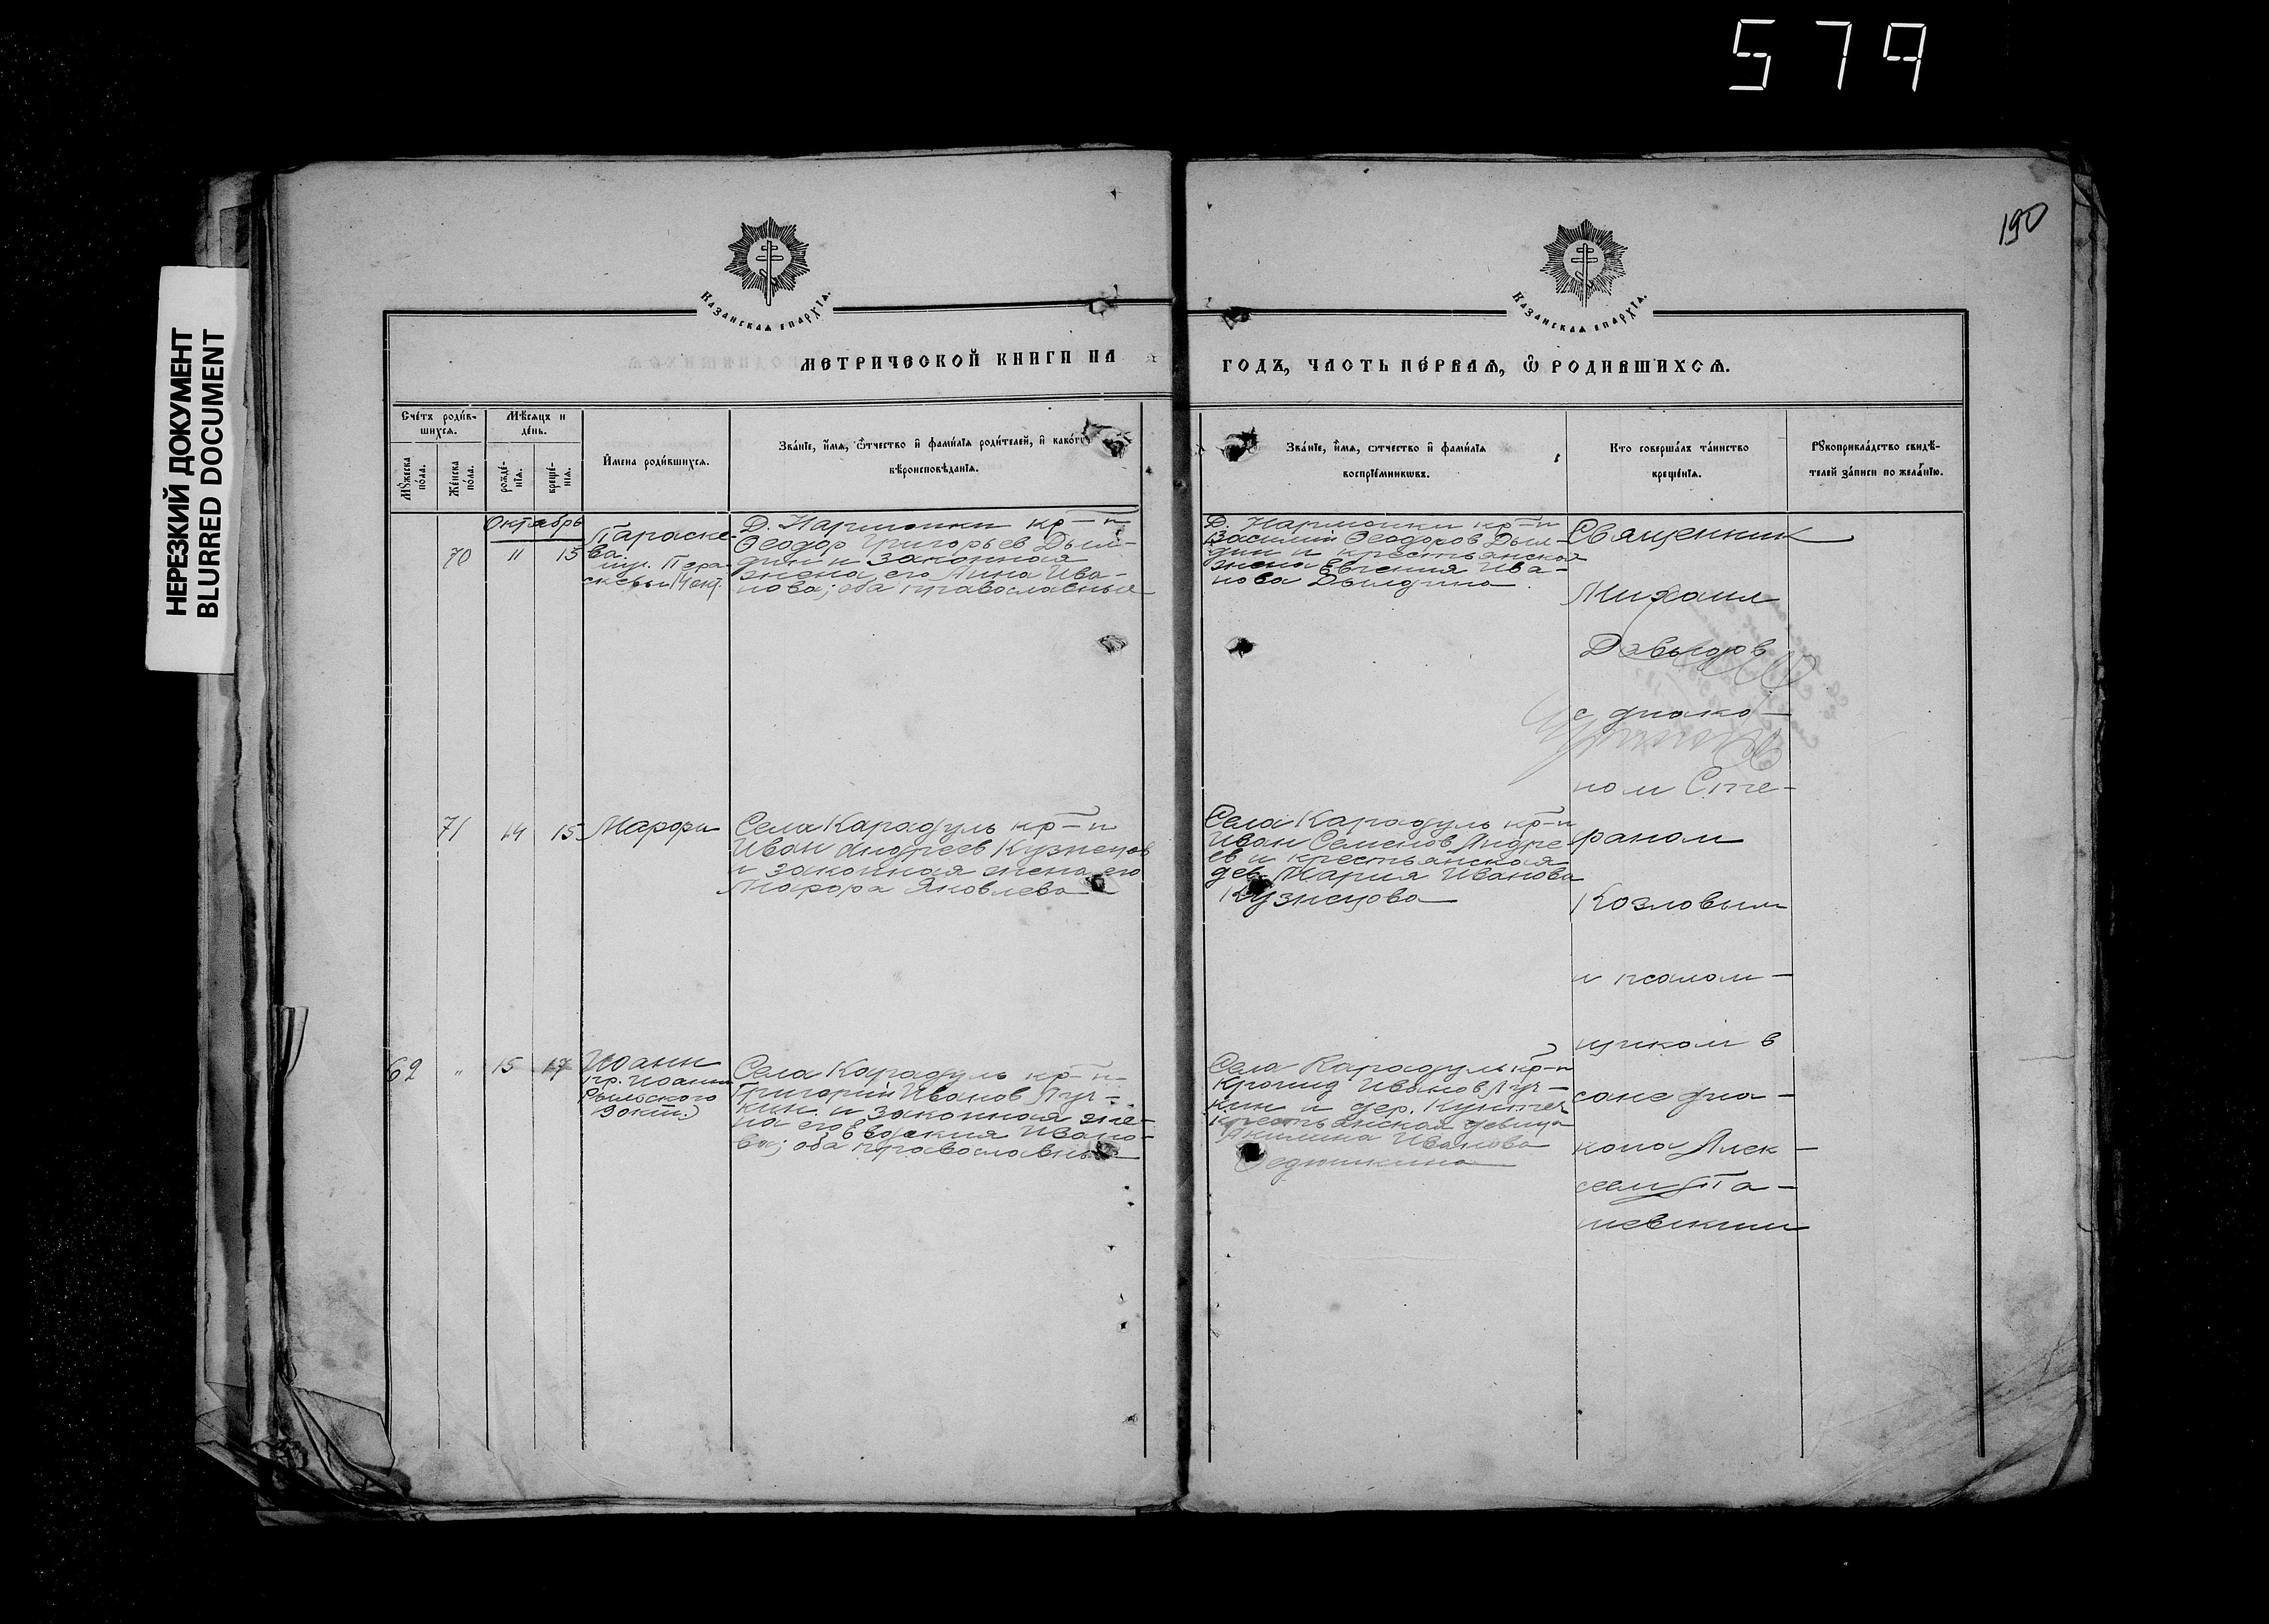 579
190
НЕРЕЗКИЙ ДОКУМЕНТ
BLURRED DOCUMENT
Казанская епархїѧ.
Казанская епархїѧ.
МЕТРИЧЕСКОЙ КНИГИ НА
ГОДЪ, ЧАСТЬ ПЕРВАѦ, Ѡ РОДИВШИХСѦ.
Счетъ родив-
шихсѧ.
Мѣсѧцъ и
день.
Мужеска
пола.
Женска
пола.
рожде-
нїѧ.
креще-
нїѧ.
Имена родившихсѧ.
Званїе, имѧ, отчество и фамилїѧ родителей, и какогѡ
вѣроисповѣданїѧ.
Званїе, имѧ, отчество и фамилїѧ
воспрїемникѡвъ.
Кто совершалъ таинство
крещенїѧ.
Рукоприкладство свидѣ-
телей записи по желанїю.
Октябрь
70 11 15
Параске-
ва
Пара-
скевы 14 окт.
Д. Нармонки кр-н
Ѳеодор Григорьев Дыл-
дин и законная
жена его Анна Ива-
нова; оба православные
Д. Нармонки кр-н
Василий Ѳеодоров Дыл-
дин и крестьянская
жена Евгения Ива-
нова Дылдина
Священник
Михаил
Давыдов
с диако-
ном Сте-
фаном
Козловым
и псалом-
щиком в
сане диа-
кона Алек-
шевским
71 14 15 Марфа
Села Карадуль кр-н
Иван Андреев Кузнецов
и законная жена его
Марфа Яковлева
Села Карадуль кр-н
Иван Семенов Андре-
ев и крестьянская
дев. Мария Иванова
Кузнецова
62 " 15 17
Иоанн
пр. Иоанна
Рыльского
Села Карадуль кр-н
Григорий Иванов Луч-
кин и законная же-
на его Евдокия Ивано-
ва; оба православные
Села Карадуль кр-н
Иванов Луч-
кин и дер.
крестьянская девица
Акилина Иванова
Федюшкина